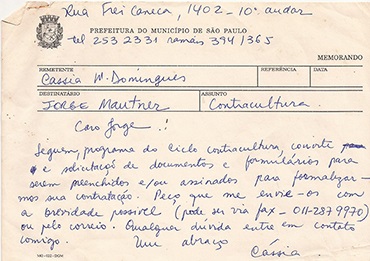 Rua Frei Caneca, 1402 - 10º andar
PREFEITURA DO MUNICÍPIO DE SÃO PAULO
tel 253 2331 ramais 394 / 365
MEMORANDO
REMETENTE
REFERÊNCIA
DATA
Cássia M. Domingues
DESTINATÁRIO
ASSUNTO
JORGE MAUTNER
Contracultura
Caro Jorge
Seguem, programa do Ciclo Contracultura, convite
e solicitação de documentos e formulários para
serem preenchidos e/ou assinados para formalizar-
mos sua contratação. Peço que me envie-os com
a brevidade possível (pode ser via fax - 011-287 9970)
ou pelo correio. Qualquer dúvida entre em contato
comigo.
Um abraço
Cássia